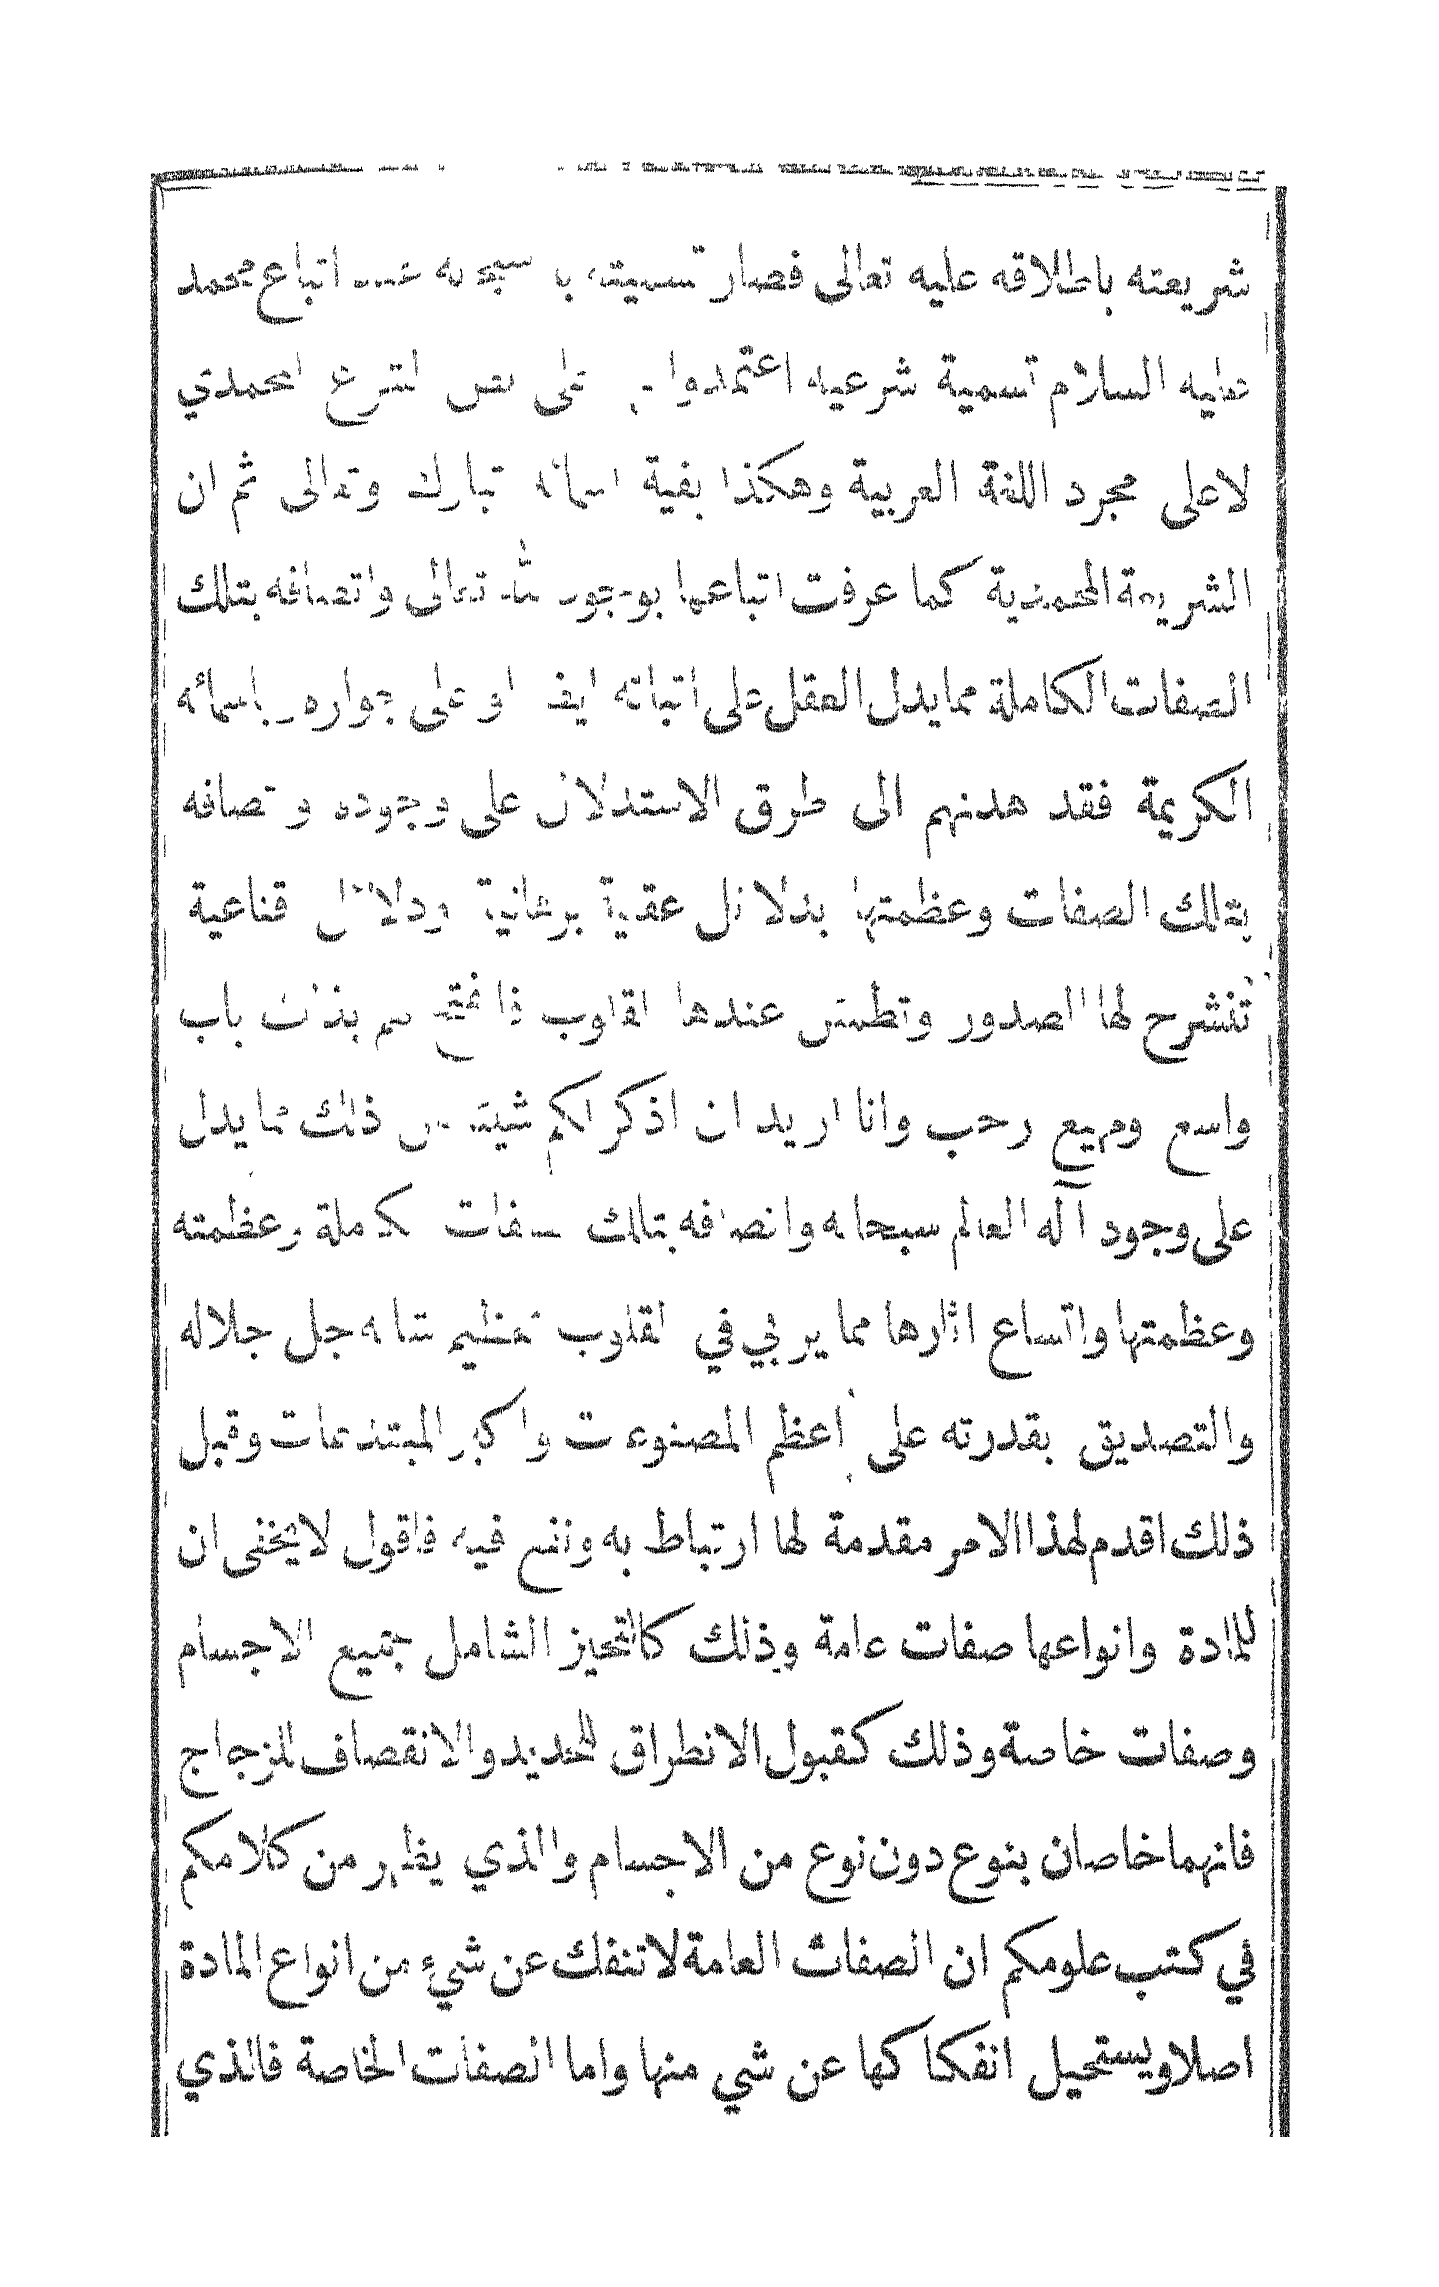 شريعته باطلاقه عليه تعالى فصار تسميته به سبحانه عند اتباع محمد
عليه السلام تسمية شرعية اعتمدوا على نص الشرع المحمدي
لاعلى مجرد اللغة العربية وهكذا بقية اسمائه تبارك وتعالى ثم ان
الشريعة المحمدية كما عرفت اتباعها بوجود الله تعالى واتصافه بتلك
الصفات الكاملة مما يدل العقل على اثباته ايضا او على جوازه وباسمائه
الكريمة فقد هدتهم الى طرق الاستدلال على وجوده واتصافه
بتلك الصفات وعظمتها بدلائل عقلية برهانية ودلائل اقناعية
تنشرح لها الصدور وتطمئن عندها القلوب فانفتح لهم بذلك باب
واسع ومهيع رحب وانا اريد ان اذكر لكم شيئا من ذلك مما يدل
على وجود اله العالم سبحانه واتصافه بتلك الصفات الكاملة وعظمته
وعظمتها واتساع اثارها مما يربي في القلوب تعظيم شانه جل جلاله
والتصديق بقدرته على اعظم المصنوعات واكبر المبتدعات وقبل
ذلك اقدم لهذا الامر مقدمة لها ارتباط به ونفع فيه فاقول لا يخفى ان
للمادة وانواعها صفات عامة وذلك كالتحيز الشامل جميع الاجسام
وصفات خاصة وذلك كقبول الانطراق للحديد والانقصاف للزجاج
فانهما خاصان بنوع دون نوع من الاجسام والذي يظهر من كلامكم
في كتب علومكم ان الصفات العامة لاتنفك عن شيء من انواع المادة
اصلا ويستحيل انفكاكها عن شي منها واما الصفات الخاصة فالذي